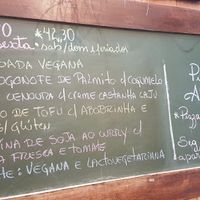 *42,30
sexta * sab/dom e feriados
OADA VEGANA
OGONOFE DE PALMITO c/COGUMELO
CENOURA c/CREME CASTANHA CAJU
O DE TOFU c/ ABOBRINHA E
s/ GLÚTEN
INA DE SOJA AO CURRY c/
A FRESCA E TOMATE
HE: VEGANA E LACTOVEGETARIANA
P
A
Pizza
Seg
apar